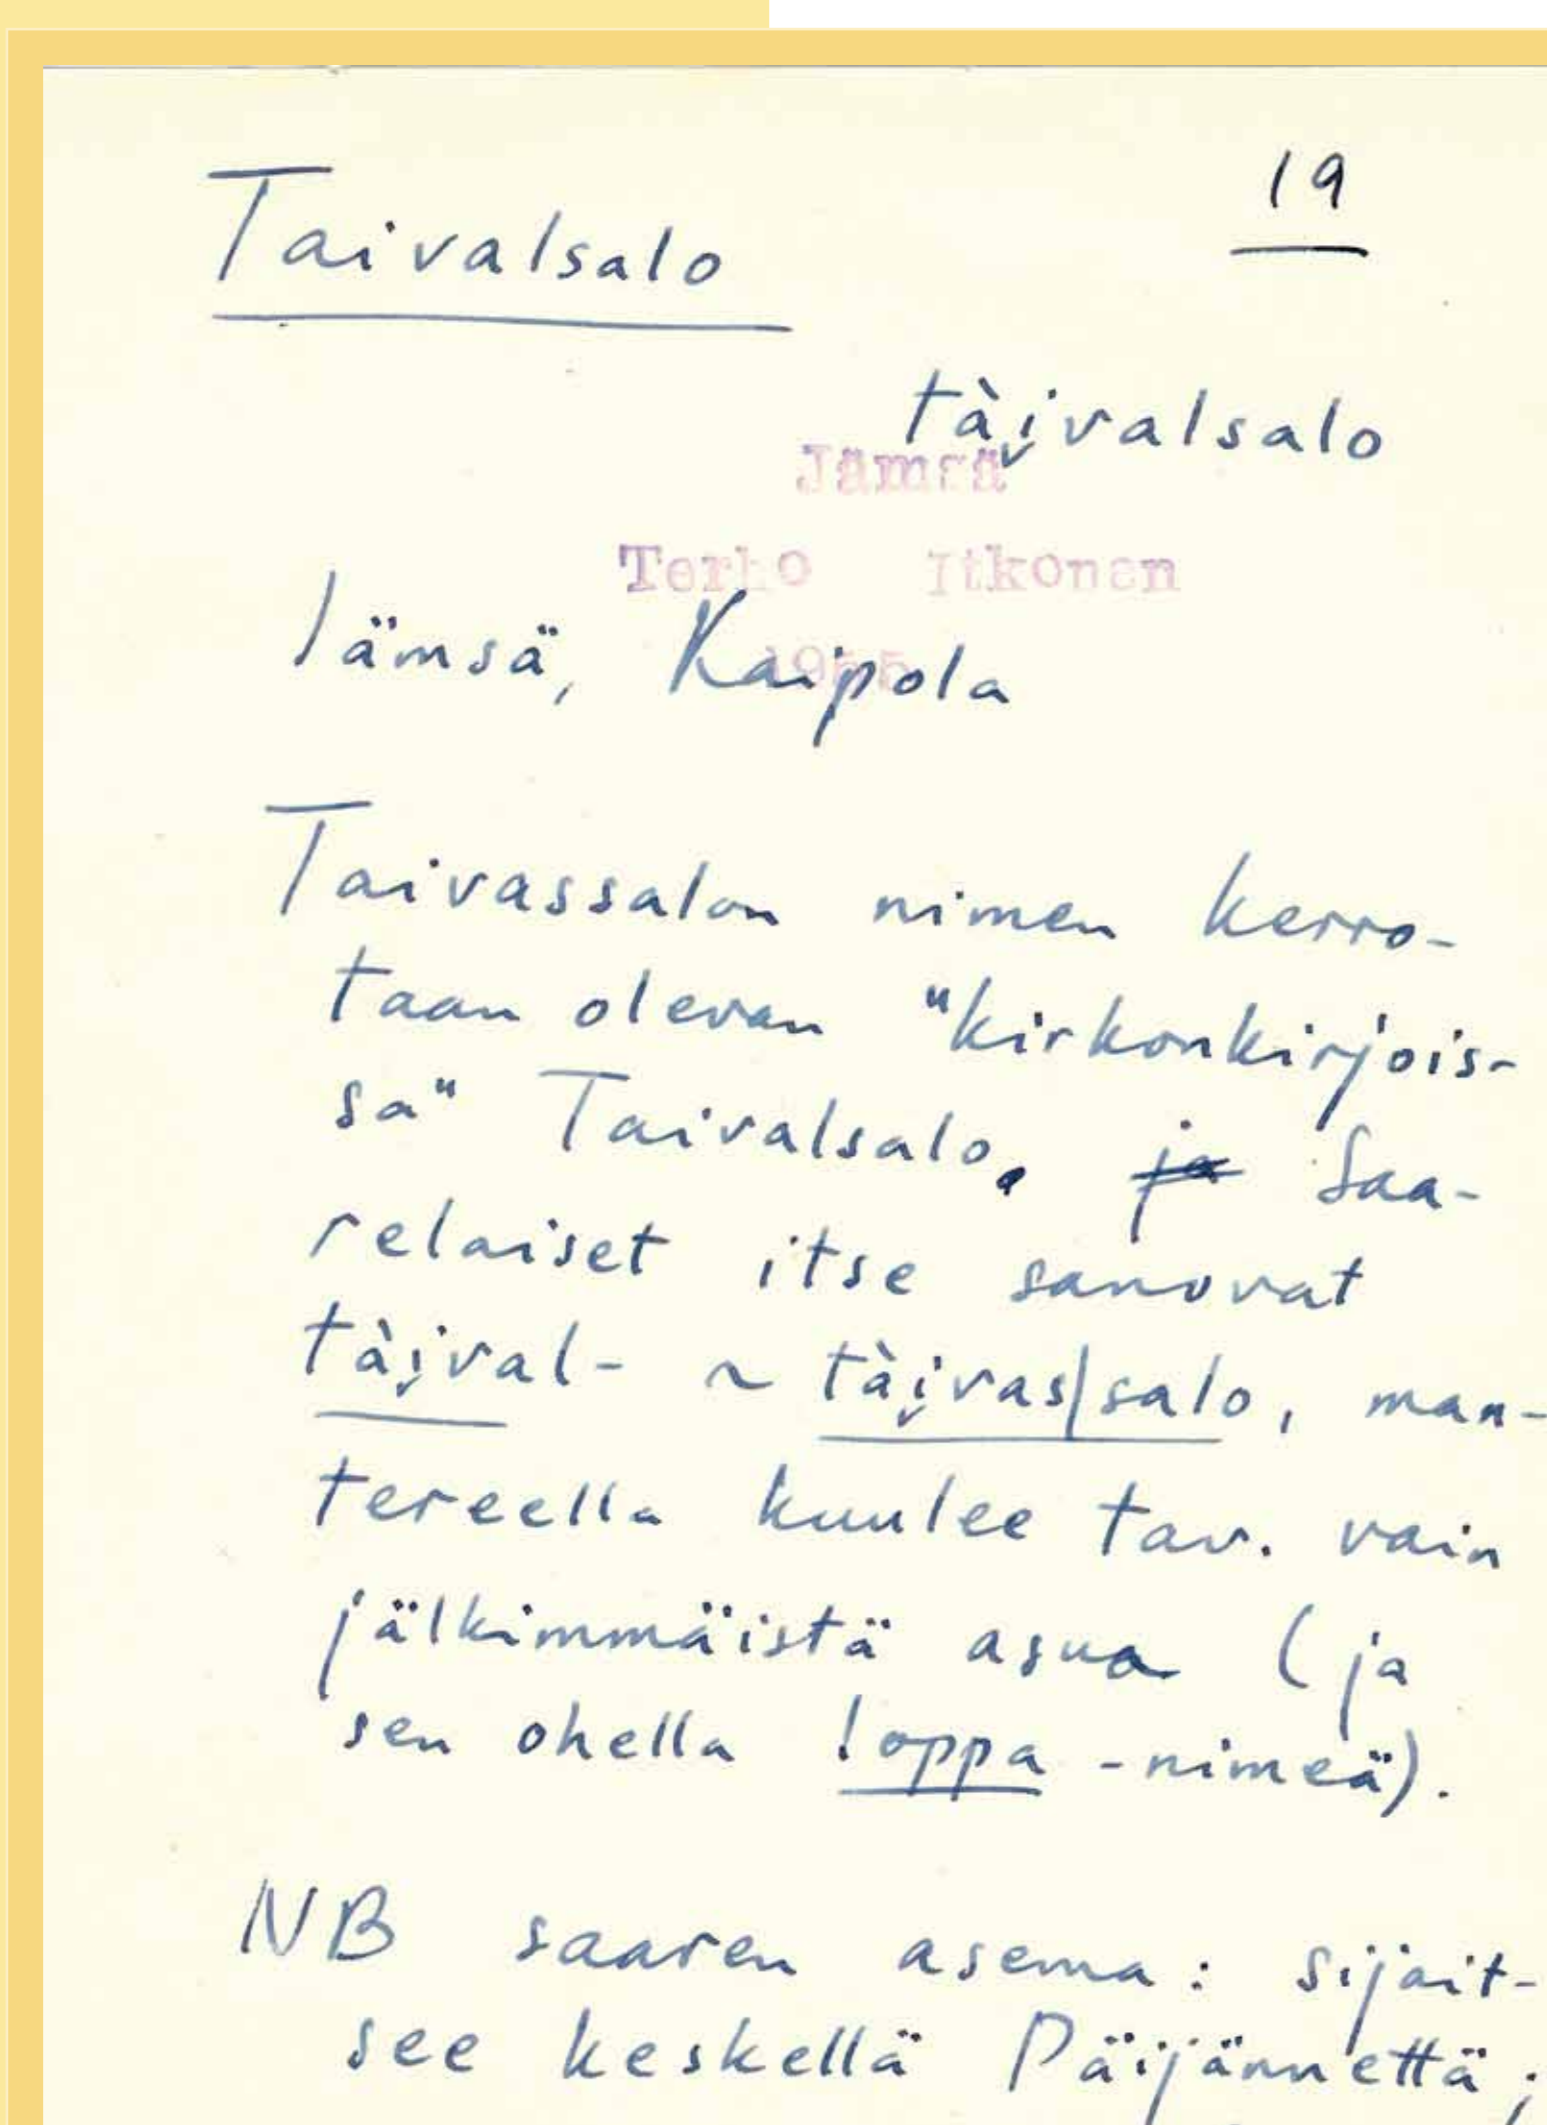 Taivalsalo
19
tài̯valsalo
Jämsä
Terho Itkonen
1955
Jämsä, Kaipola
Taivassalon nimen kerro-
taan olevan "kirkonkirjois-
sa" Taivalsalo. ja Saa-
relaiset itse sanovat
tài̯val- ~ tài̯vas|salo, man-
tereella kuulee tav. vain
jälkimmäistä asua (ja
sen ohella !oppa -nimeä).
NB saaren asema: sijait-
see keskellä Päijännettä;